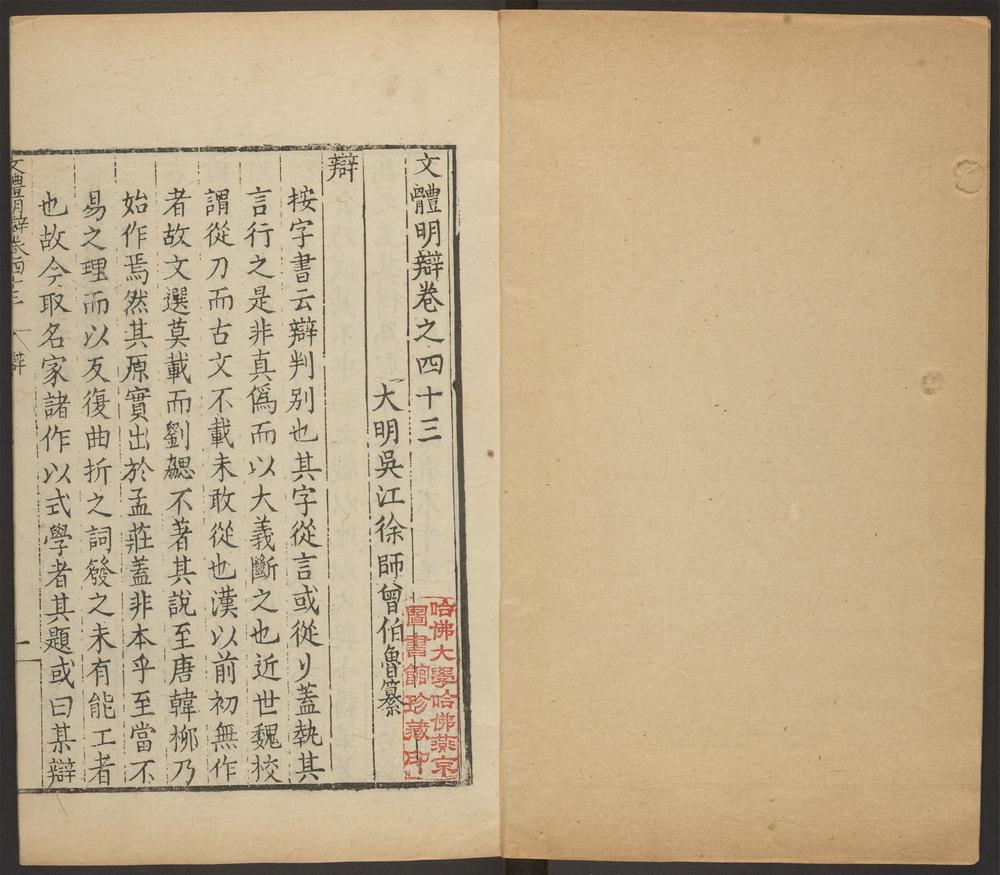 文體明辯卷之四十三
大明吳江徐師曾伯魯纂
辯
按字書云辯判別也其字從言或從刂蓋執其
言行之是非真僞而以大義斷之也近世魏校
謂從刀而古文不載未敢從也漢以前初無作
者故文選莫載而劉勰不著其說至唐韓栁乃
始作焉然其原實出於孟莊蓋非本乎至當不
易之理而以反復曲折之詞發之未有能工者
也故今取名家諸作以式學者其題或曰某辯
文體明辯卷四十三
辯
一
哈佛大學哈佛燕京
圖書館珍藏印